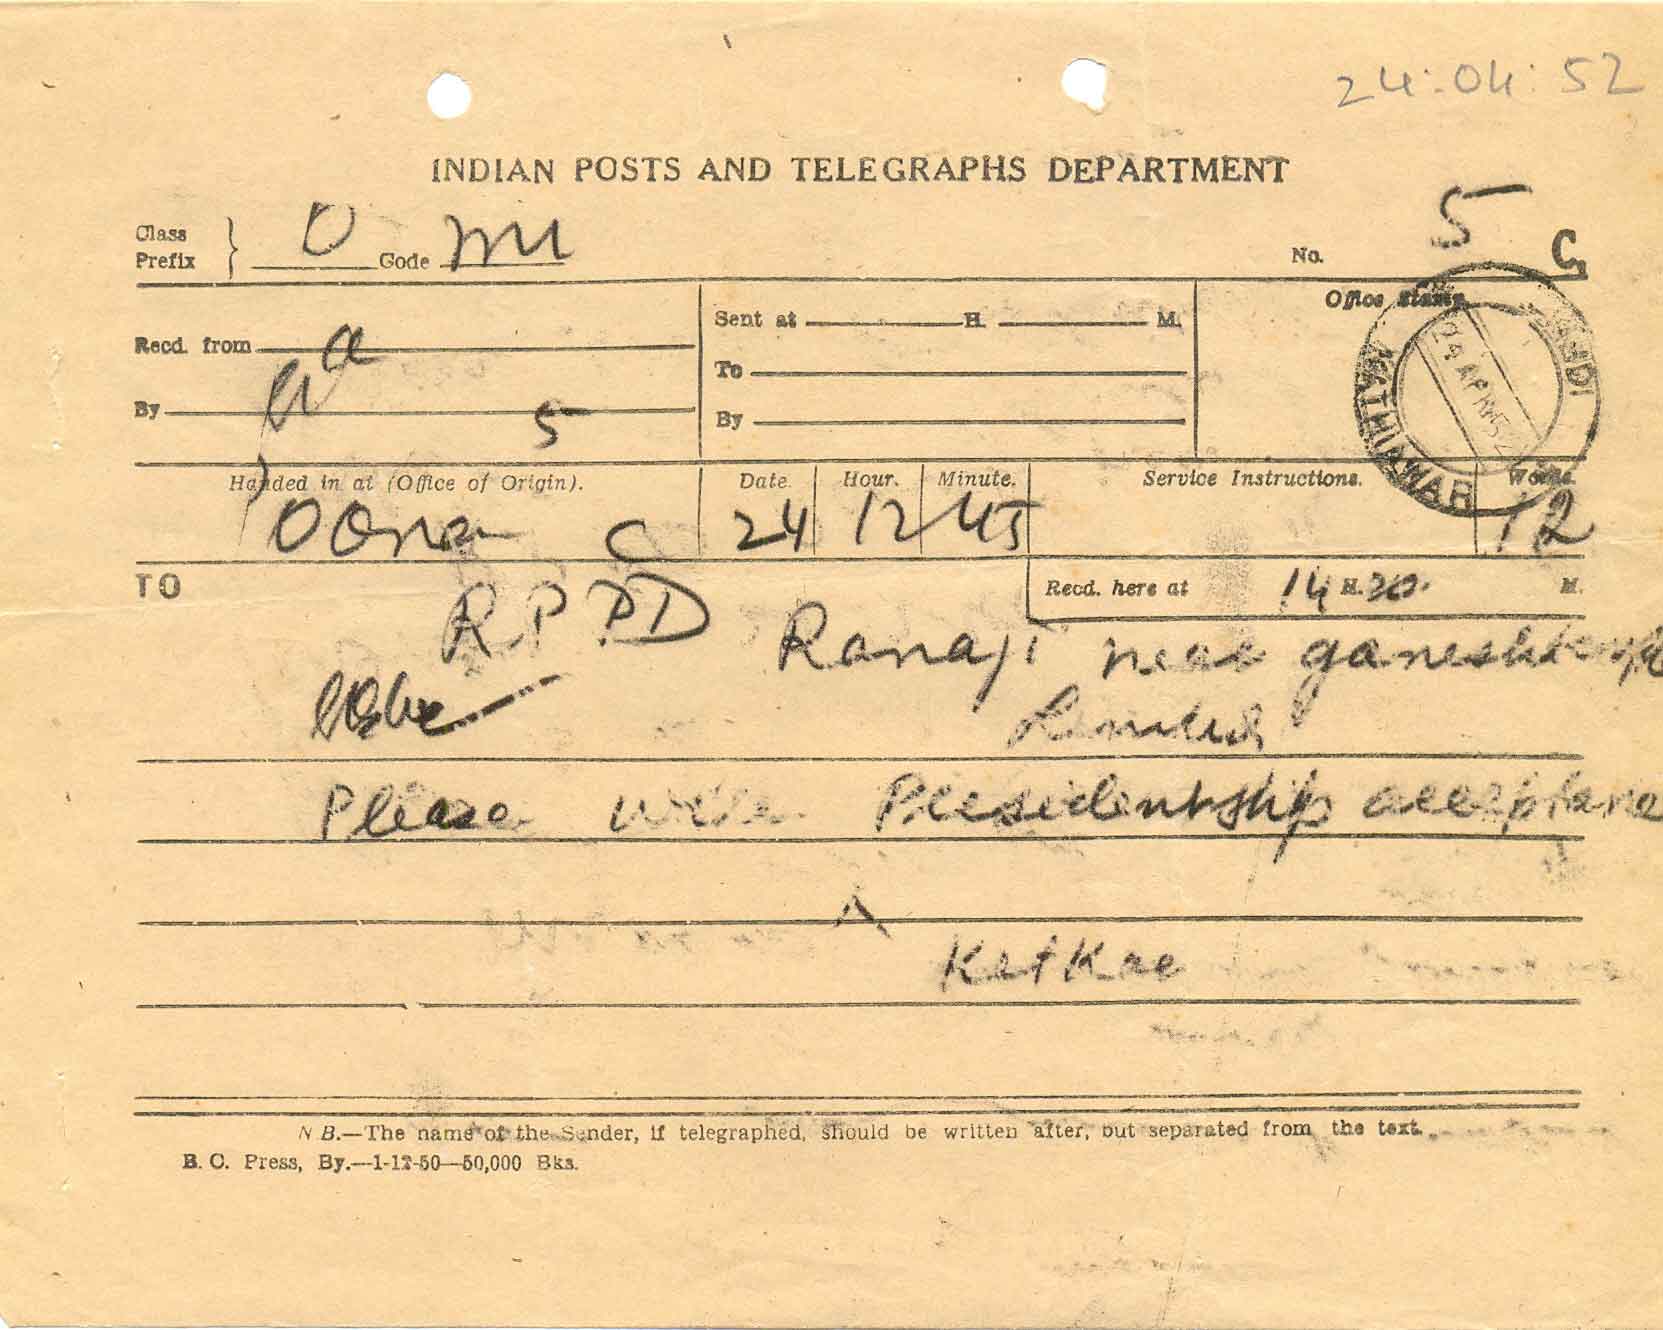 24:04:52
INDIAN POSTS AND TELEGRAPHS DEPARTMENT
Class
Prefix } O Code
No. 5
Office Stamp
KATHIAWAR
24 APR 52
Recd. from
Sent at H. M.
To
By
By
5
Handed in at (Office of Origin). Date Hour. Minute. Service Instructions. Words.
C 24 12 45 12
TO
Recd. here at 14 H. 30. M.
Ranaji near
Please Presidentship
Ketkar
N B.—The name of the Sender, if telegraphed, should be written after, but separated from the text.
B. C. Press, By.—1-12-50—50,000 Bks.